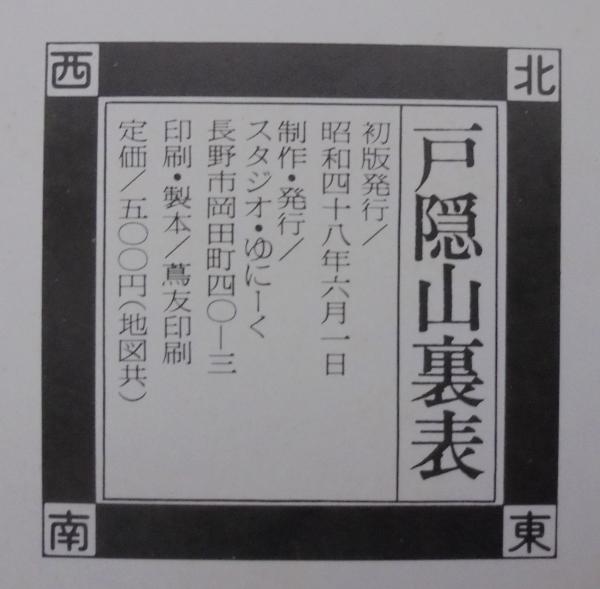 北
西
戸隠山裏表
初版発行/
昭和四十八年六月一日
制作・発行/
スタジオ・ゆにーく
長野市岡田町四〇ー三
印刷・製本/蔦友印刷
定価/五〇〇円(地図共)
東
南